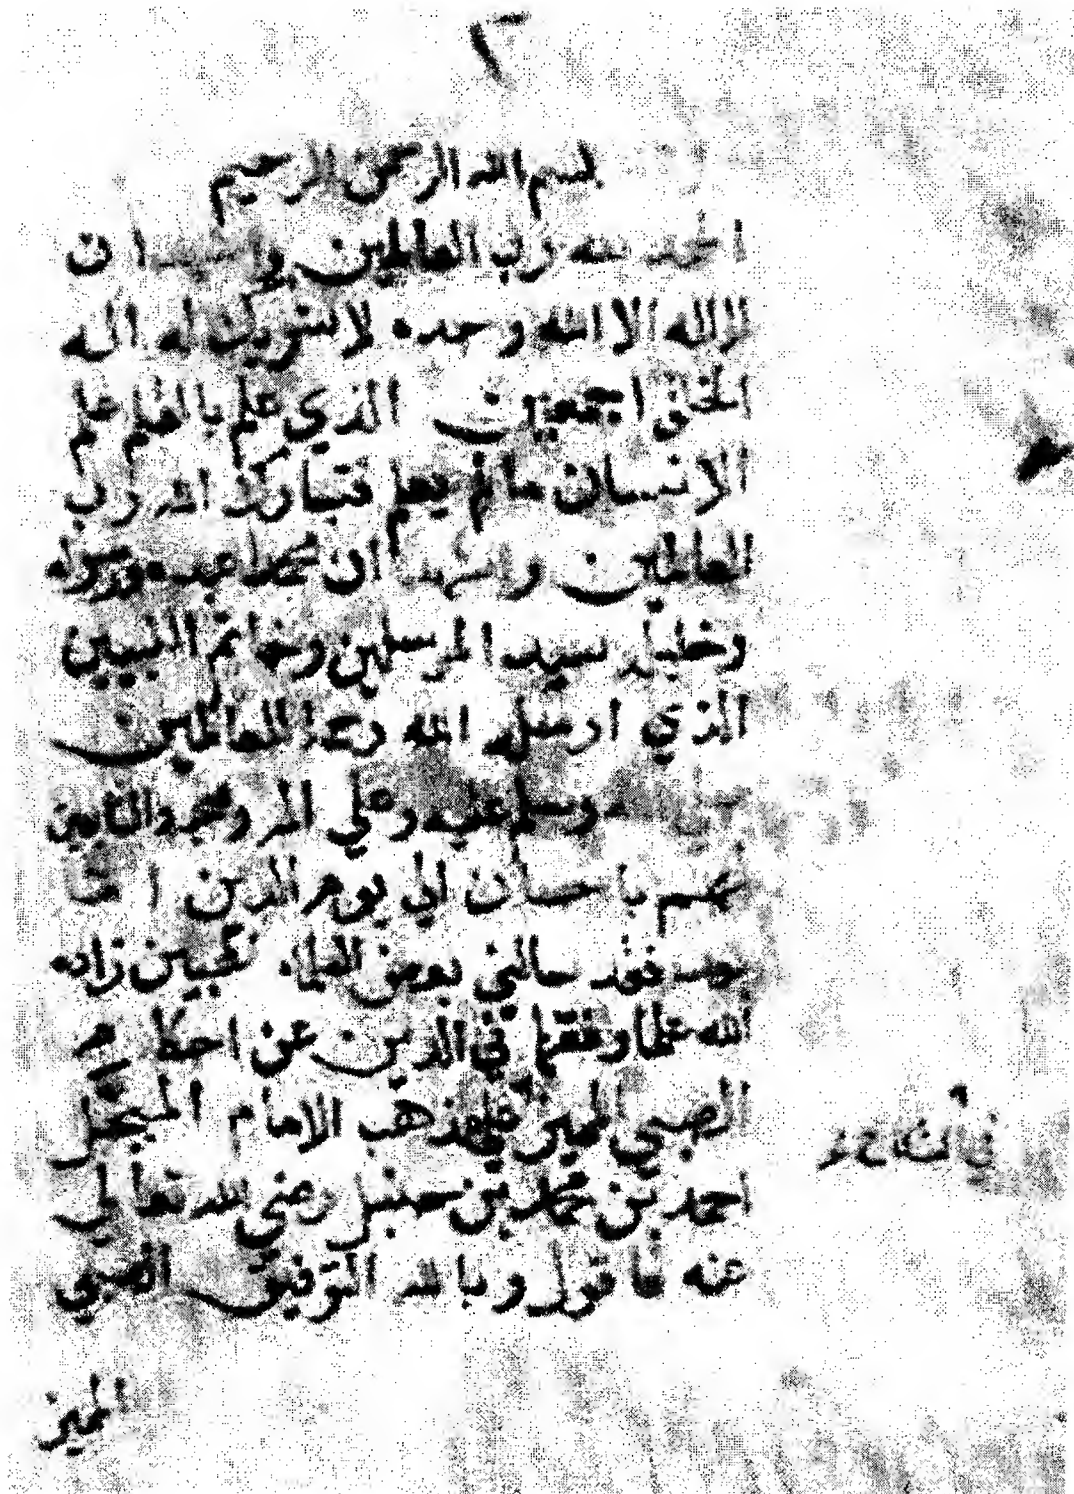 ٢
بسم الله الرحمن الرحيم
الحمد لله رب العالمين واشهد ان
لا اله الا الله وحده لا شريك له اله
الخلق اجمعين الذي علم بالقلم علم
الانسان ما لم يعلم فتبارك الله رب
العالمين واشهد ان محمدا عبده ورسوله
وخليله سيد المرسلين وخاتم النبيين
الذي ارسله الله رحمة للعالمين
وسلم عليه وعلي اله وصحبه والتابعين
لهم باحسان الي يوم الدين اما
بعد فقد سالني بعض العلماء المحبين زاده
الله علما وفقها في الدين عن احكام
الصبي المميز علي مذهب الامام المبجل
احمد بن محمد بن حنبل رضي الله تعالي
عنه فاقول وبالله التوفيق الصبي
المميز
في النكاح